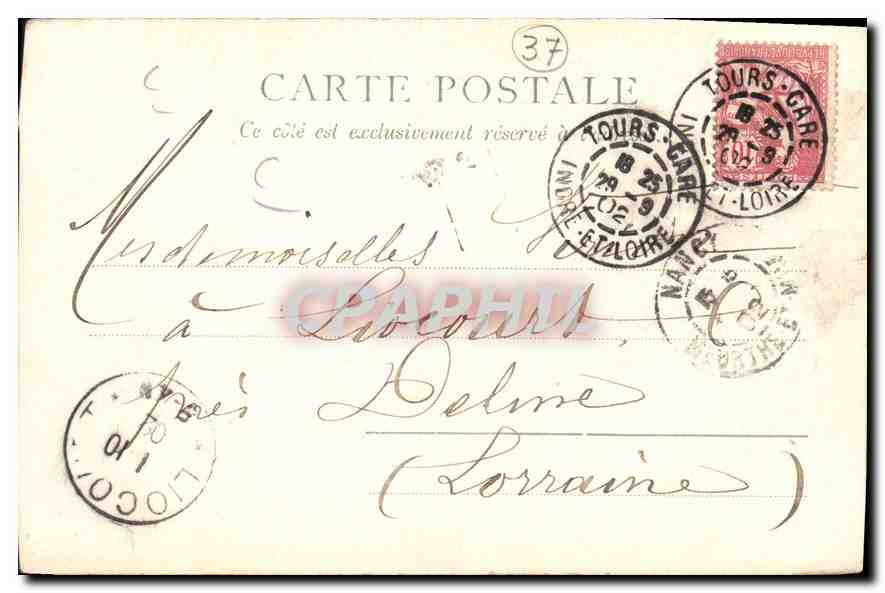 37
CARTE POSTALE
Ce côté est exclusivement réservé à
TOURS-GARE
18 25
29 9
02
INDRE-ET-LOIRE
TOURS-GARE
18 25
29 9
ET-LOIRE
Mesdemoiselles
NANCY
MEURTHE
CPAPHIL
à Liocourt
près Delme
(Lorraine)
LIOCOURT
1 10